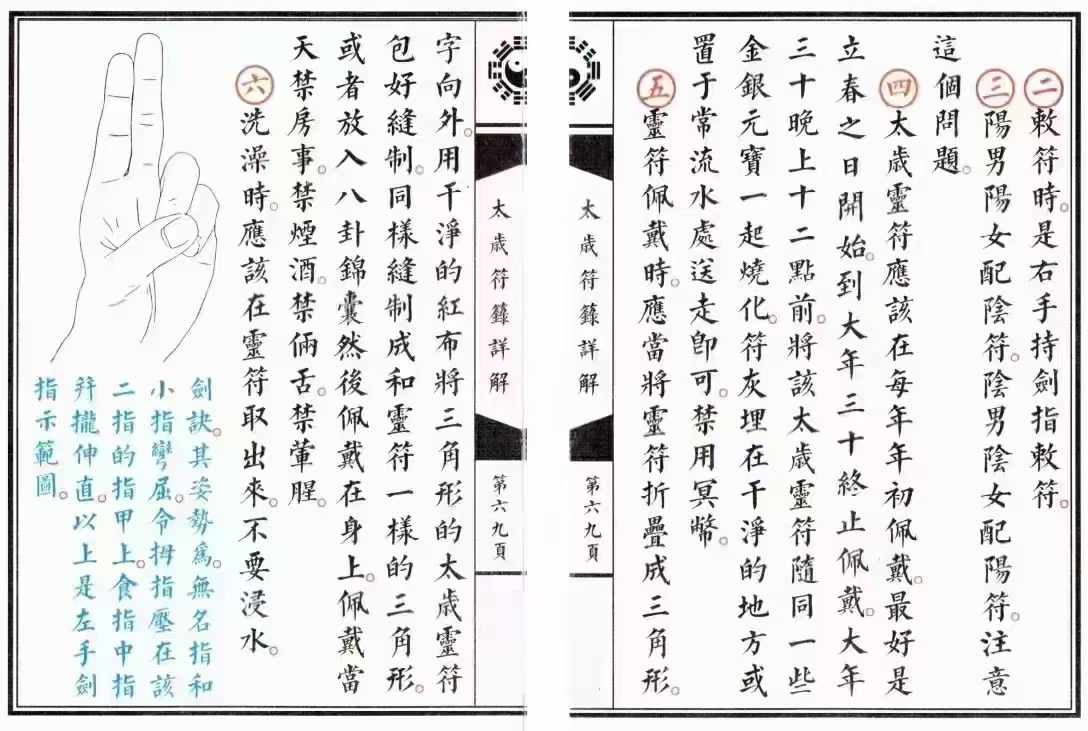 二敕符時。是右手持劍指敕符。
三陽男陽女配陰符。陰男陰女配陽符。注意
這個問題。
四太歲靈符應該在每年年初佩戴。最好是
立春之日開始。到大年三十終止佩戴。大年
三十晚上十二點前。將該太歲靈符隨同一些
金銀元寶一起燒化。符灰埋在干淨的地方或
置于常流水處送走即可。禁用冥幣。
五靈符佩戴時。應當將靈符折疊成三角形。
太歲符籙詳解
第六九頁
太歲符籙詳解
第六九頁
字向外。用干淨的紅布將三角形的太歲靈符
包好縫制。同樣縫制成和靈符一樣的三角形。
或者放入八卦錦囊然後佩戴在身上。佩戴當
天禁房事。禁煙酒。禁倆舌。禁葷腥。
六洗澡時。應該在靈符取出來。不要浸水。
劍訣。其姿勢為。無名指和
小指彎屈。令拇指壓在該
二指的指甲上。食指中指
幷攏伸直。以上是左手劍
指示範圖。